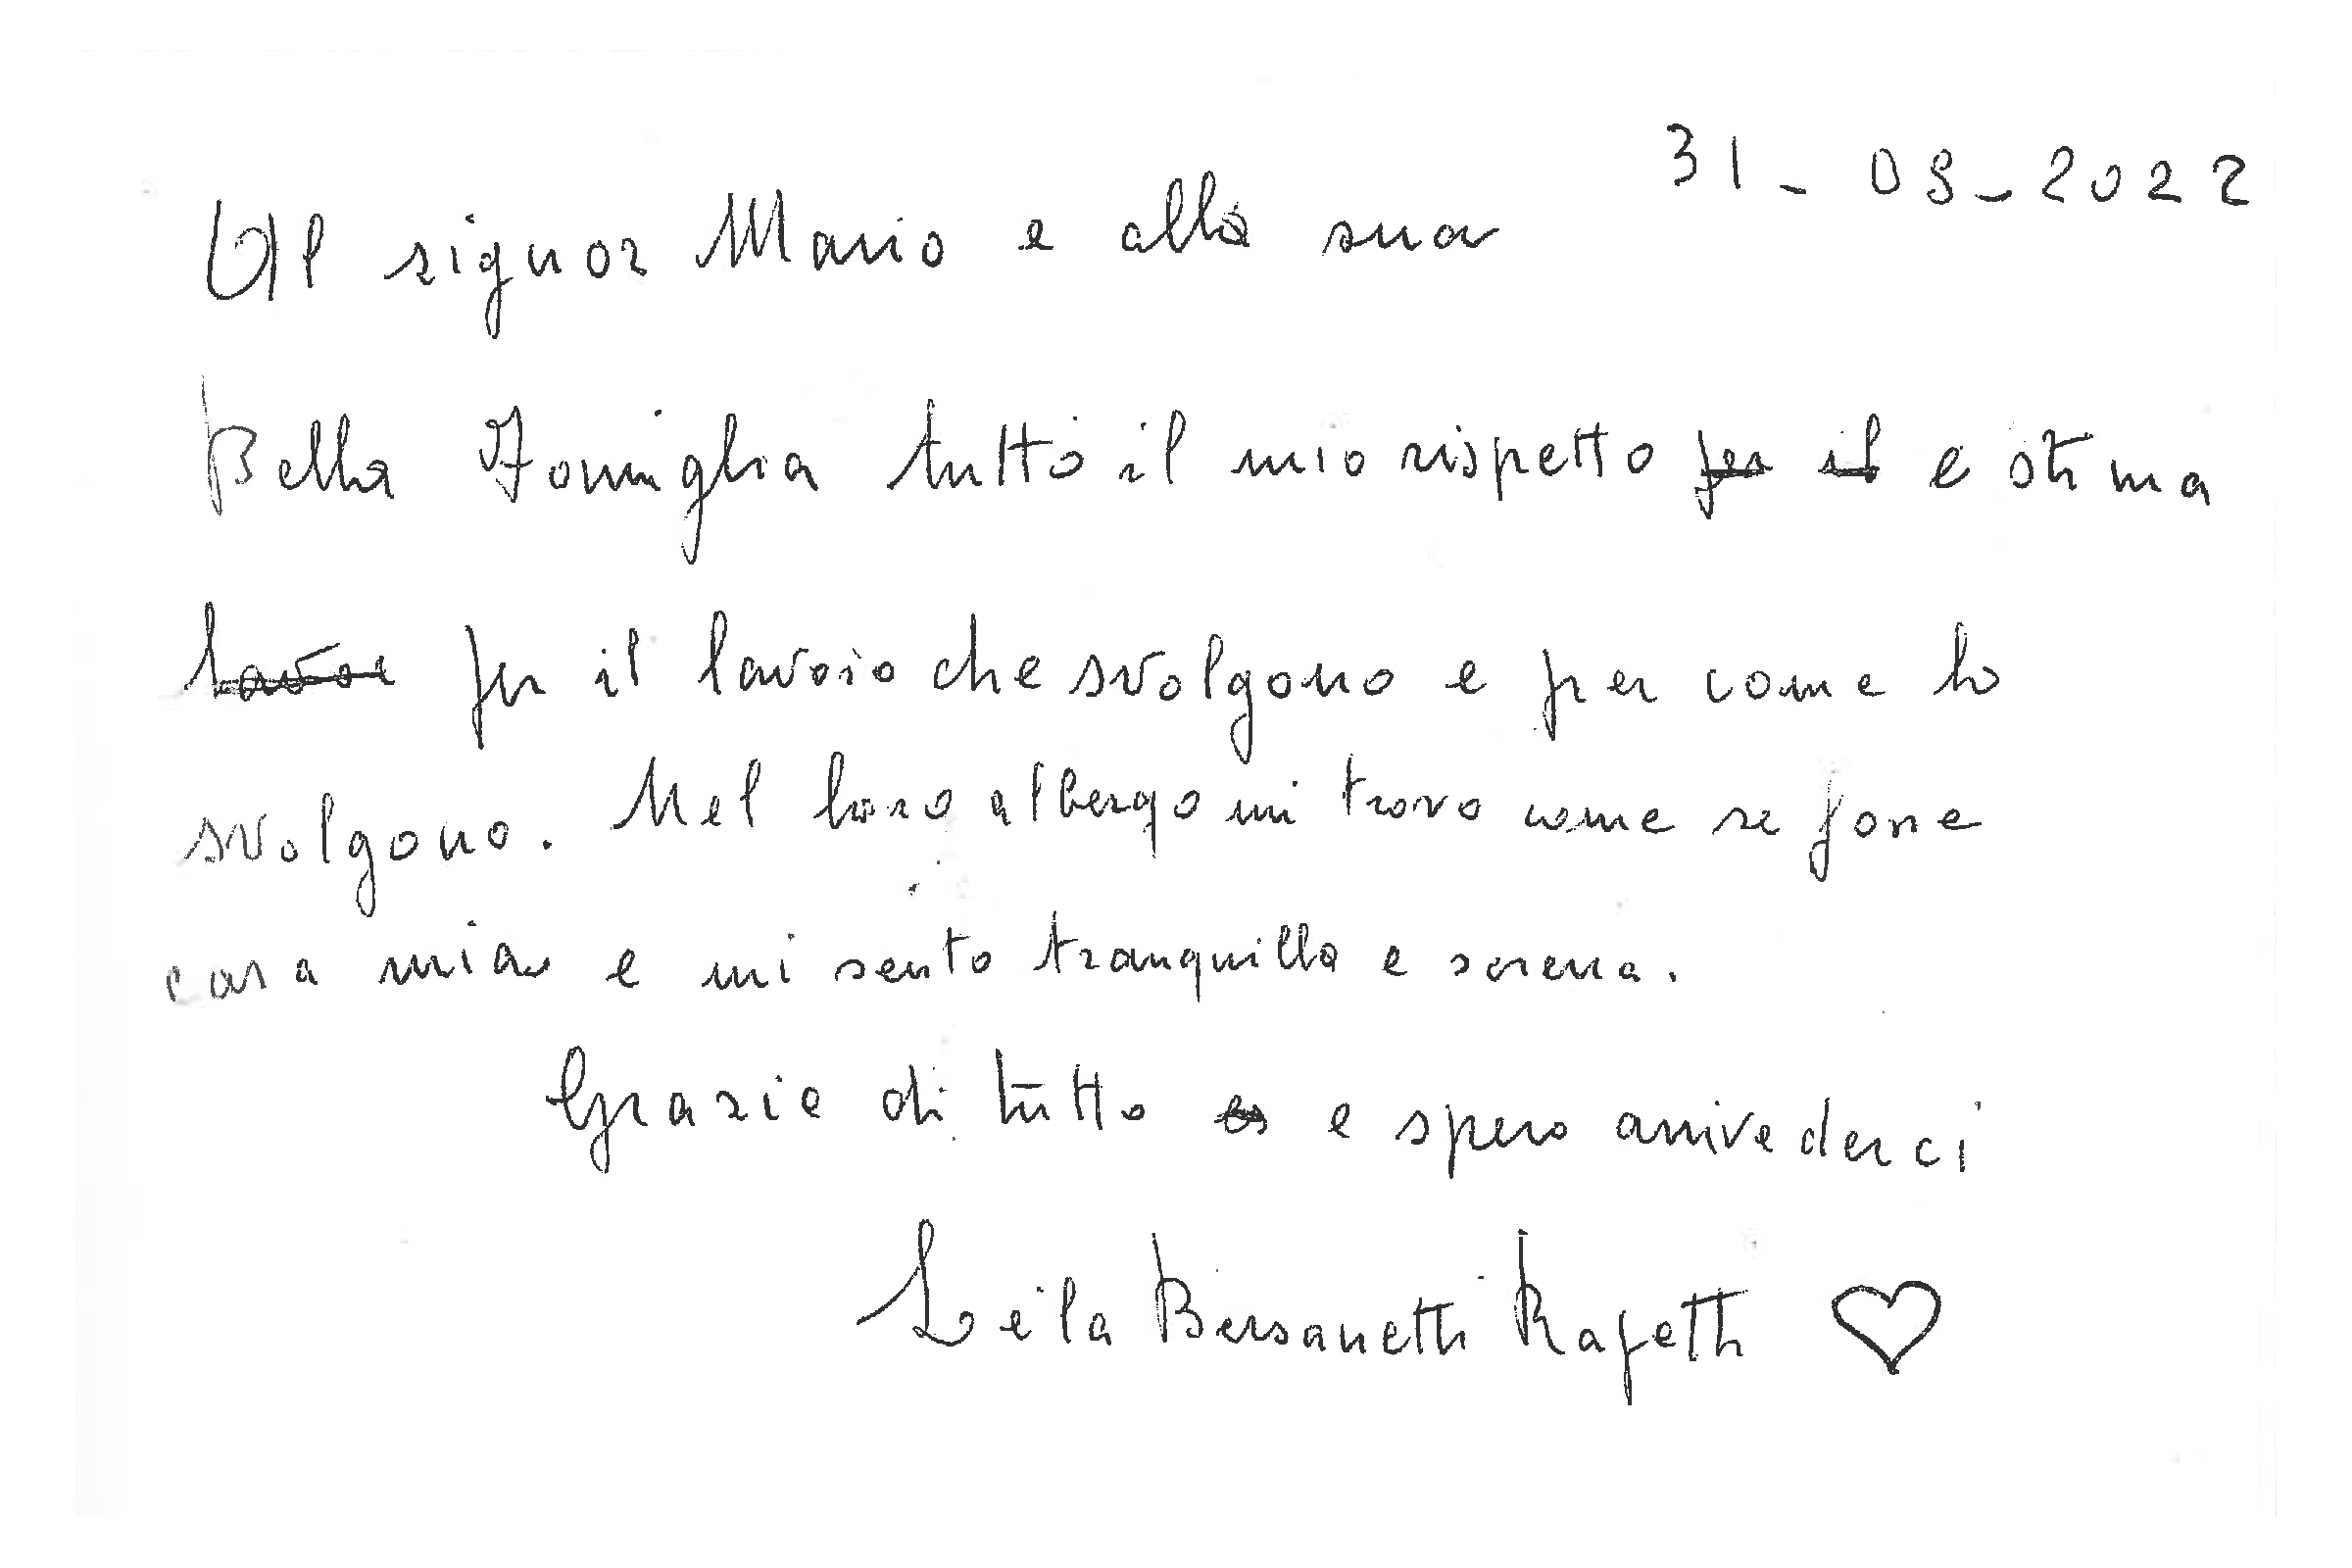 31-08-2022
Al signor Mario e alla sua
Bella Famiglia tutto il mio rispetto per il e stima
lavor per il lavoro che svolgono e per come lo
svolgono. Nel loro albergo mi trovo come se fosse
casa mia e mi sento tranquilla e serena.
Grazie di tutto e spero arrivederci
Leila Bersanetti